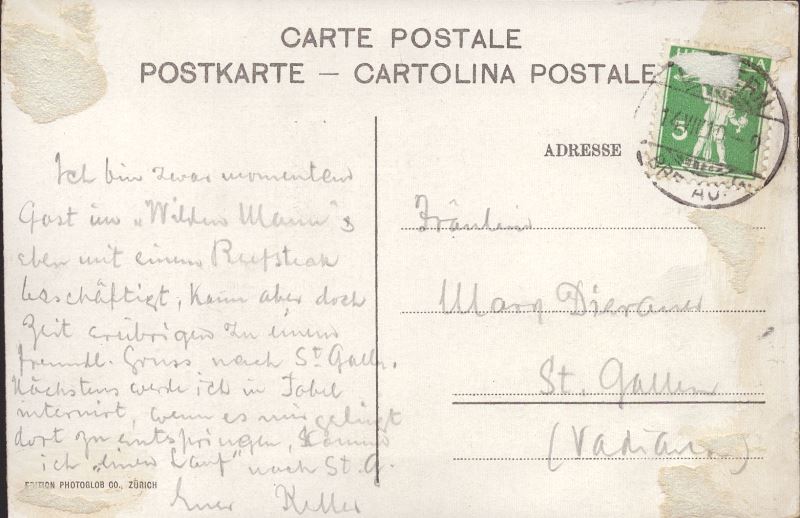 CARTE POSTALE
POSTKARTE – CARTOLINA POSTALE
HELVETIA
5
14.VII.10
ADRESSE
Ich bin zwar momentan
Gast im „Wilden Mann" &
eben mit einem Beefsteak
beschäftigt, kann aber doch
Zeit erübrigen zu einem
freundl. Gruss nach St. Gallen.
Nächstens werde ich in Tobel
internirt, wenn es mir gelingt
dort zu entspringen, komme
ich „einen Lauf" nach St. G.
Euer Keller
Fräulein
Mary Dierauer
St. Gallen
(Vadiana)
EDITION PHOTOGLOB CO., ZÜRICH